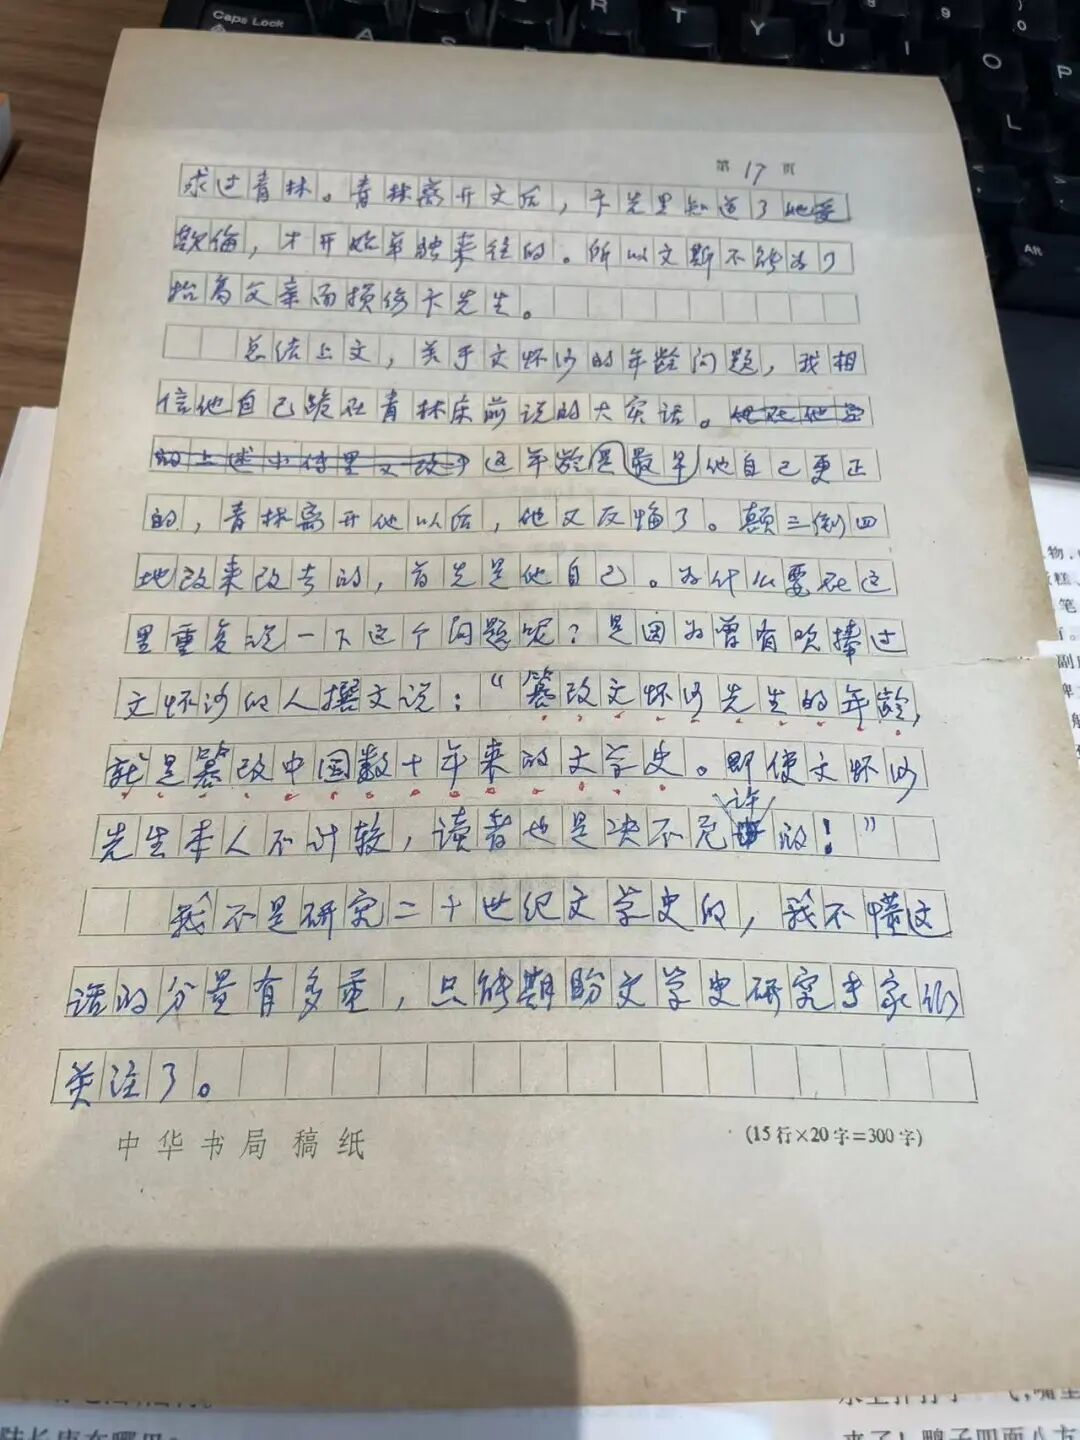 Caps Lock
A
S
R
T
Y
U
I
O
P
L
AR
第 17 页
求过青林。青林离开文后，卞先里知道了他受
欺侮，才开始单独来往的。所以文斯不能为了
抬高父亲而损伤卞先生。
总结上文，关于文怀沙的年龄问题，我相
信他自己跪在青林床前说的大实话。
的上述小传里又改 这年龄是最早他自己更正
的，青林离开他以后，他又反悔了。颠三倒四
地改来改去的，首先是他自己。为什么要在这
里重复说一下这个问题呢？是因为曾有吹捧过
文怀沙的人撰文说：“篡改文怀沙先生的年龄，
就是篡改中国数十年来的文学史。即使文怀沙
先生本人不计较，读者也是决不允许的！”
我不是研究二十世纪文学史的，我不懂这
话的分量有多重，只能期盼文学史研究专家们
关注了。
中华书局稿纸
(15行×20字=300字)
物，
糕、
笔
副
陆长庚在哪里
来了！鸭子四面八方